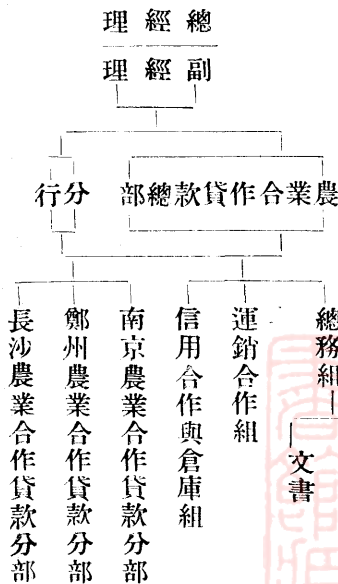 總經理
副經理
農業合作貸款總部
分行
總務組
文書
運銷合作組
信用合作與倉庫組
南京農業合作貸款分部
鄭州農業合作貸款分部
長沙農業合作貸款分部